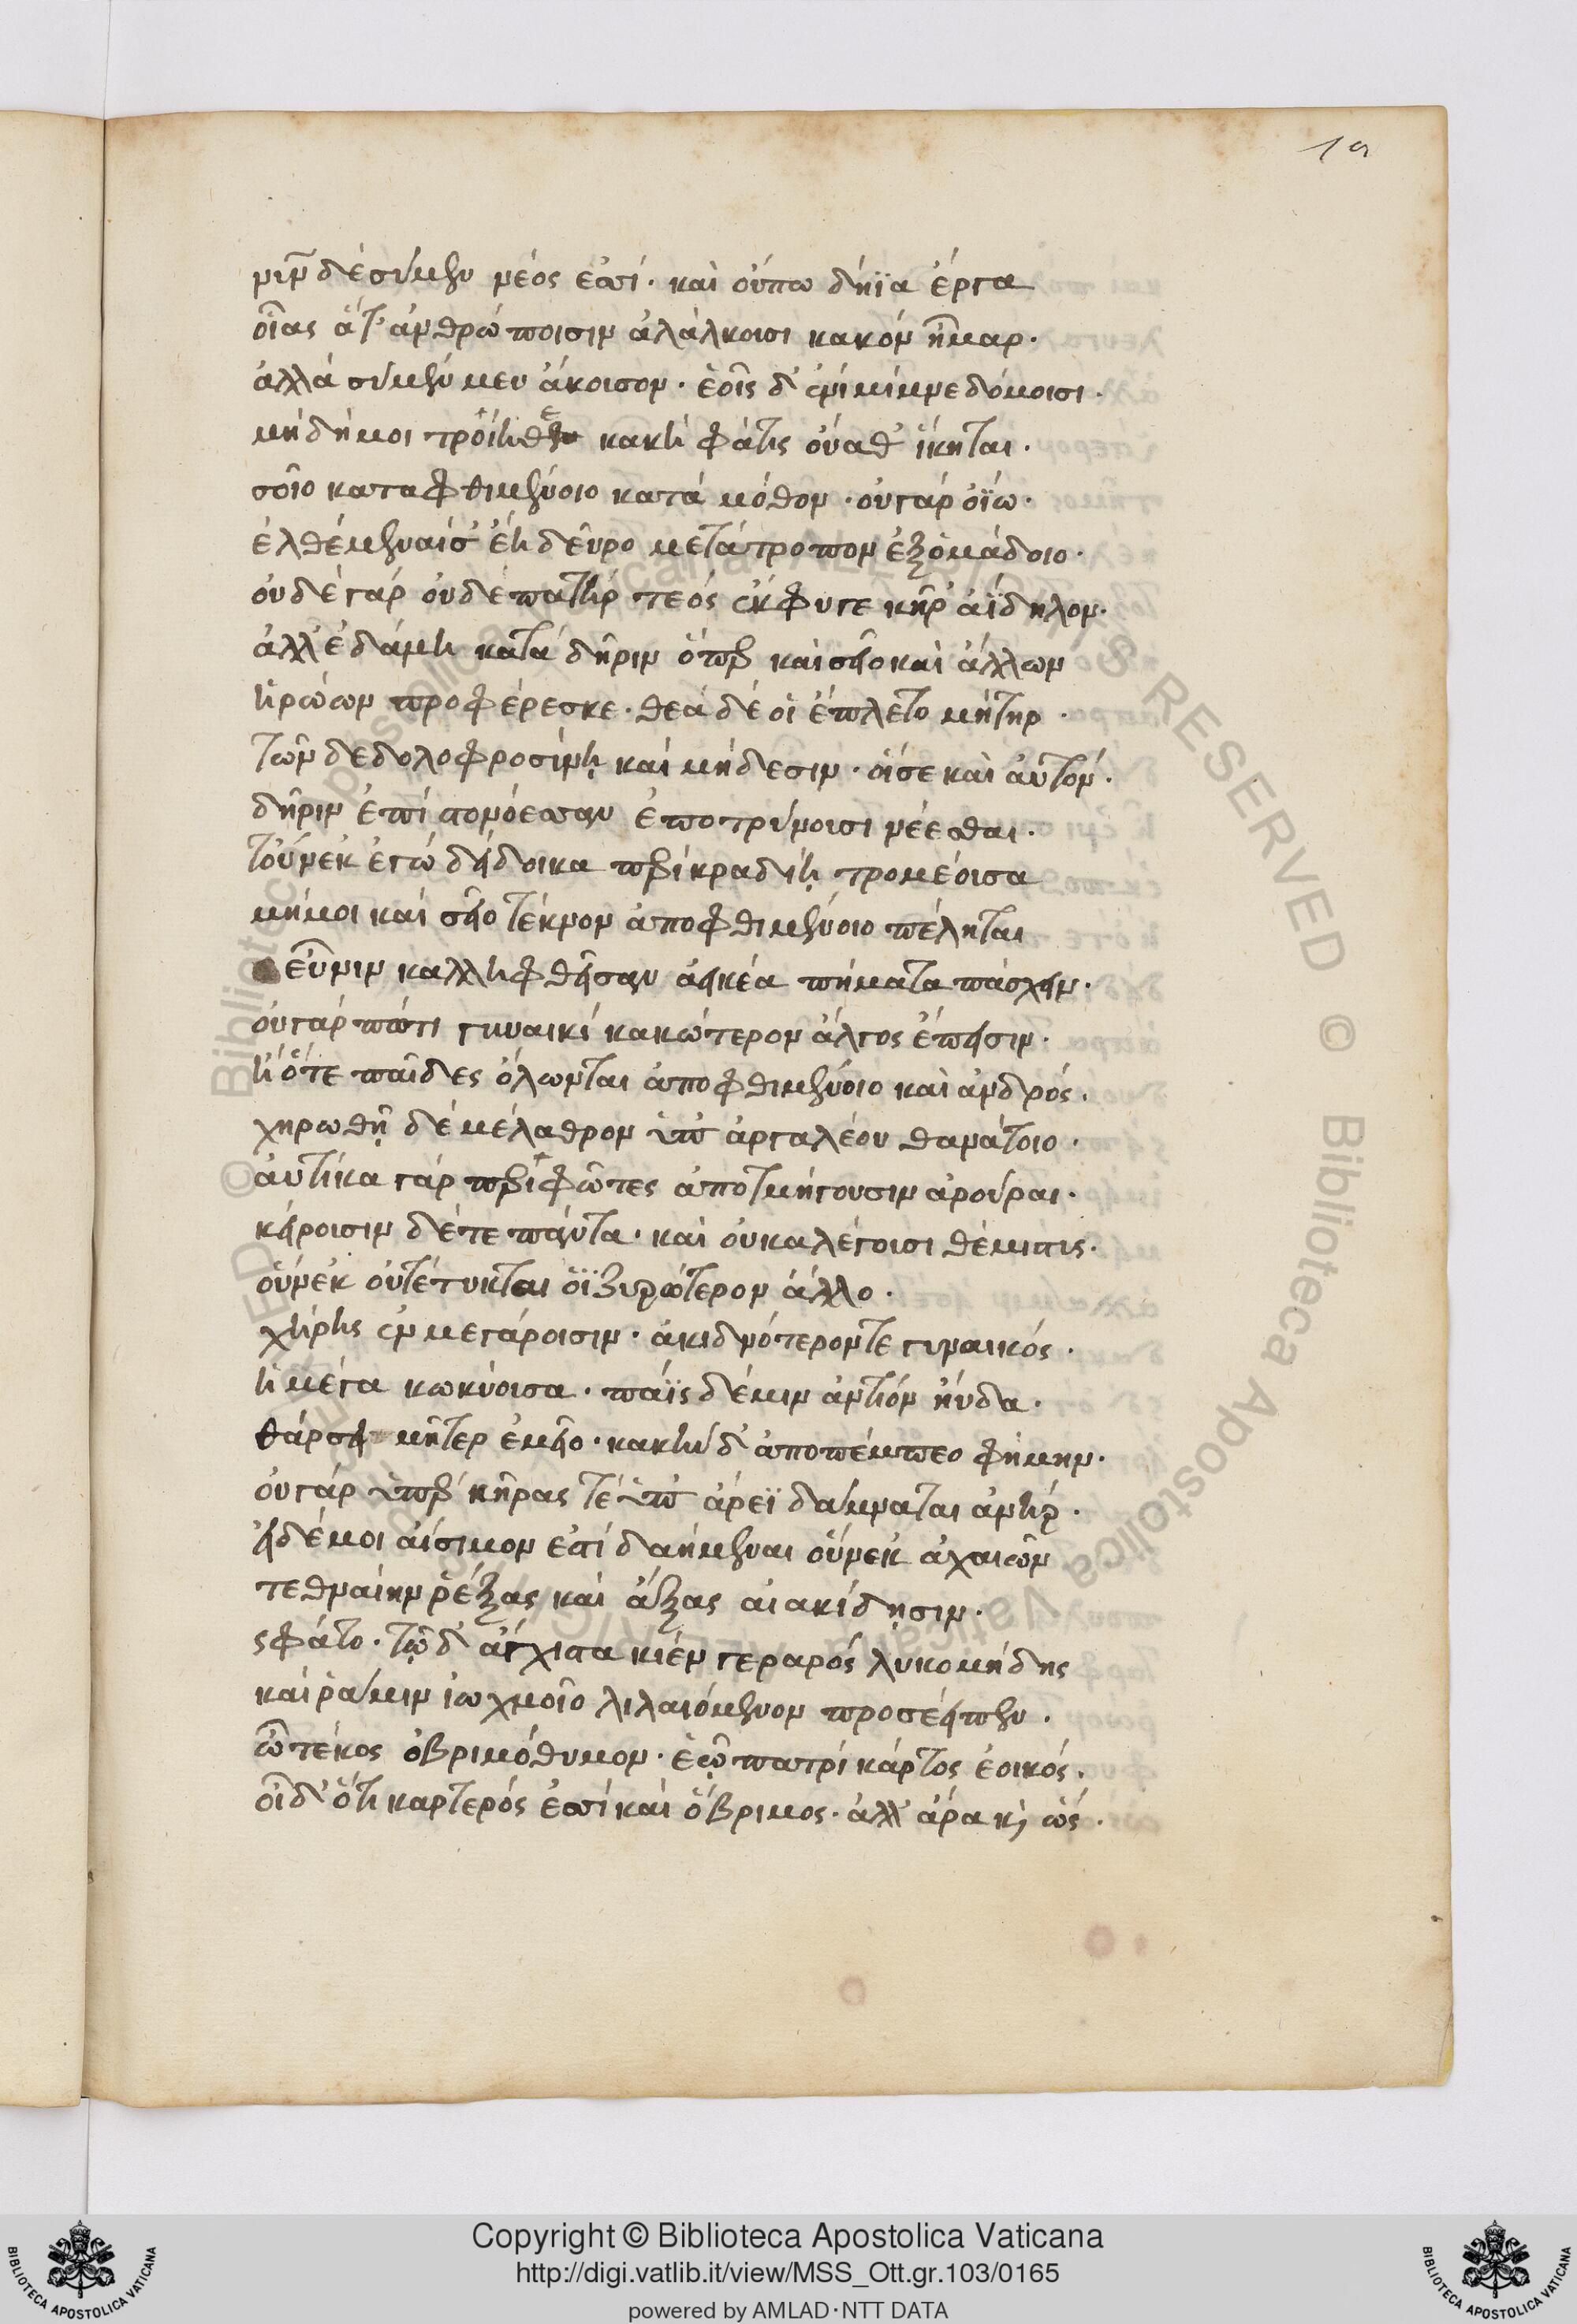 19
νῦν δὲ σὺ μὲν νέος ἐσσί· καὶ οὔπω δήϊα ἔργα
οἶδας ἅτ' ἀνθρώποισιν ἀλάλκουσι κακὸν ἦμαρ·
ἀλλὰ σὺ μὲν μευ ἄκουσον· ἑοῖς δ' ἐνὶ μίμνε δόμοισι·
μὴ δή μοι τροίηθε κακὴ φάτις οὔαθ' ἵκηται·
σοῖο καταφθιμένοιο κατὰ μόθον· οὐ γὰρ ὀΐω·
ἐλθέμεναί σ' ἔτι δεῦρο μετάτροπον ἐξ ὁμάδοιο·
οὐδὲ γὰρ οὐδὲ πατὴρ τεὸς ἔκφυγε κῆρ' ἀΐδηλον·
ἀλλ' ἐδάμη κατὰ δῆριν ὅπερ καὶ σεῖο καὶ ἄλλων
ἡρώων προφέρεσκε· θεὰ δέ οἱ ἔπλετο μήτηρ·
τῶν δὲ δολοφροσύνῃ καὶ μήδεσιν· οἵ σε καὶ αὐτόν·
δῆριν ἐπὶ στονόεσσαν ἐποτρύνουσι νέεσθαι·
τοὔνεκ' ἐγὼ δείδοικα περὶ κραδίῃ τρομέουσα
μή μοι καὶ σεῖο τέκνον ἀποφθιμένοιο πέληται
εὖνιν καλλειφθεῖσαν ἀεικέα πήματα πάσχειν·
οὐ γὰρ πώ τι γυναικὶ κακώτερον ἄλγος ἔπεισιν·
ἢ ὅτε παῖδες ὄλωνται ἀποφθιμένοιο καὶ ἀνδρός·
χηρωθῇ δὲ μέλαθρον ὑπ' ἀργαλέου θανάτοιο·
αὐτίκα γὰρ περὶ φῶτες ἀποτμήγουσιν ἀρούραι·
κείρουσιν δέ τε πάντα· καὶ οὐκ ἀλέγουσι θέμιστας·
οὕνεκ' οὐ τέτυκται ὀϊζυρώτερον ἄλλο·
χήρης ἐν μεγάροισιν· ἀκιδνότερόν τε γυναικός·
ἦ μέγα κωκύουσα· πάϊς δέ μιν ἀντίον ηὔδα·
θάρσει μῆτερ ἐμεῖο· κακὴν δ' ἀποπέμπεο φήμην·
οὐ γὰρ ὑπὲρ κῆράς τε ὑπ' ἄρεϊ δάμναται ἀνήρ·
εἰ δέ μοι αἴσιμον ἐστὶ δαήμεναι οὕνεκ' ἀχαιῶν
τεθναίην ῥέξας καὶ ἄξας αἰακίδῃσιν·
ς φάτο· τῷ δ' ἄγχιστα κίεν γεραρὸς λυκομήδης
καί ῥά μιν ἰωχμοῖο λιλαιόμενον προσέειπεν·
ὦ τέκος ὀβριμόθυμον· ἑῷ πατρὶ κάρτος ἐοικός·
οἶδ' ὅτι καρτερὸς ἐσσὶ καὶ ὄβριμος· ἀλλ' ἄρα κὶ ὥς·
Copyright © Biblioteca Apostolica Vaticana
http://digi.vatlib.it/view/MSS_Ott.gr.103/0165
powered by AMLAD·NTT DATA